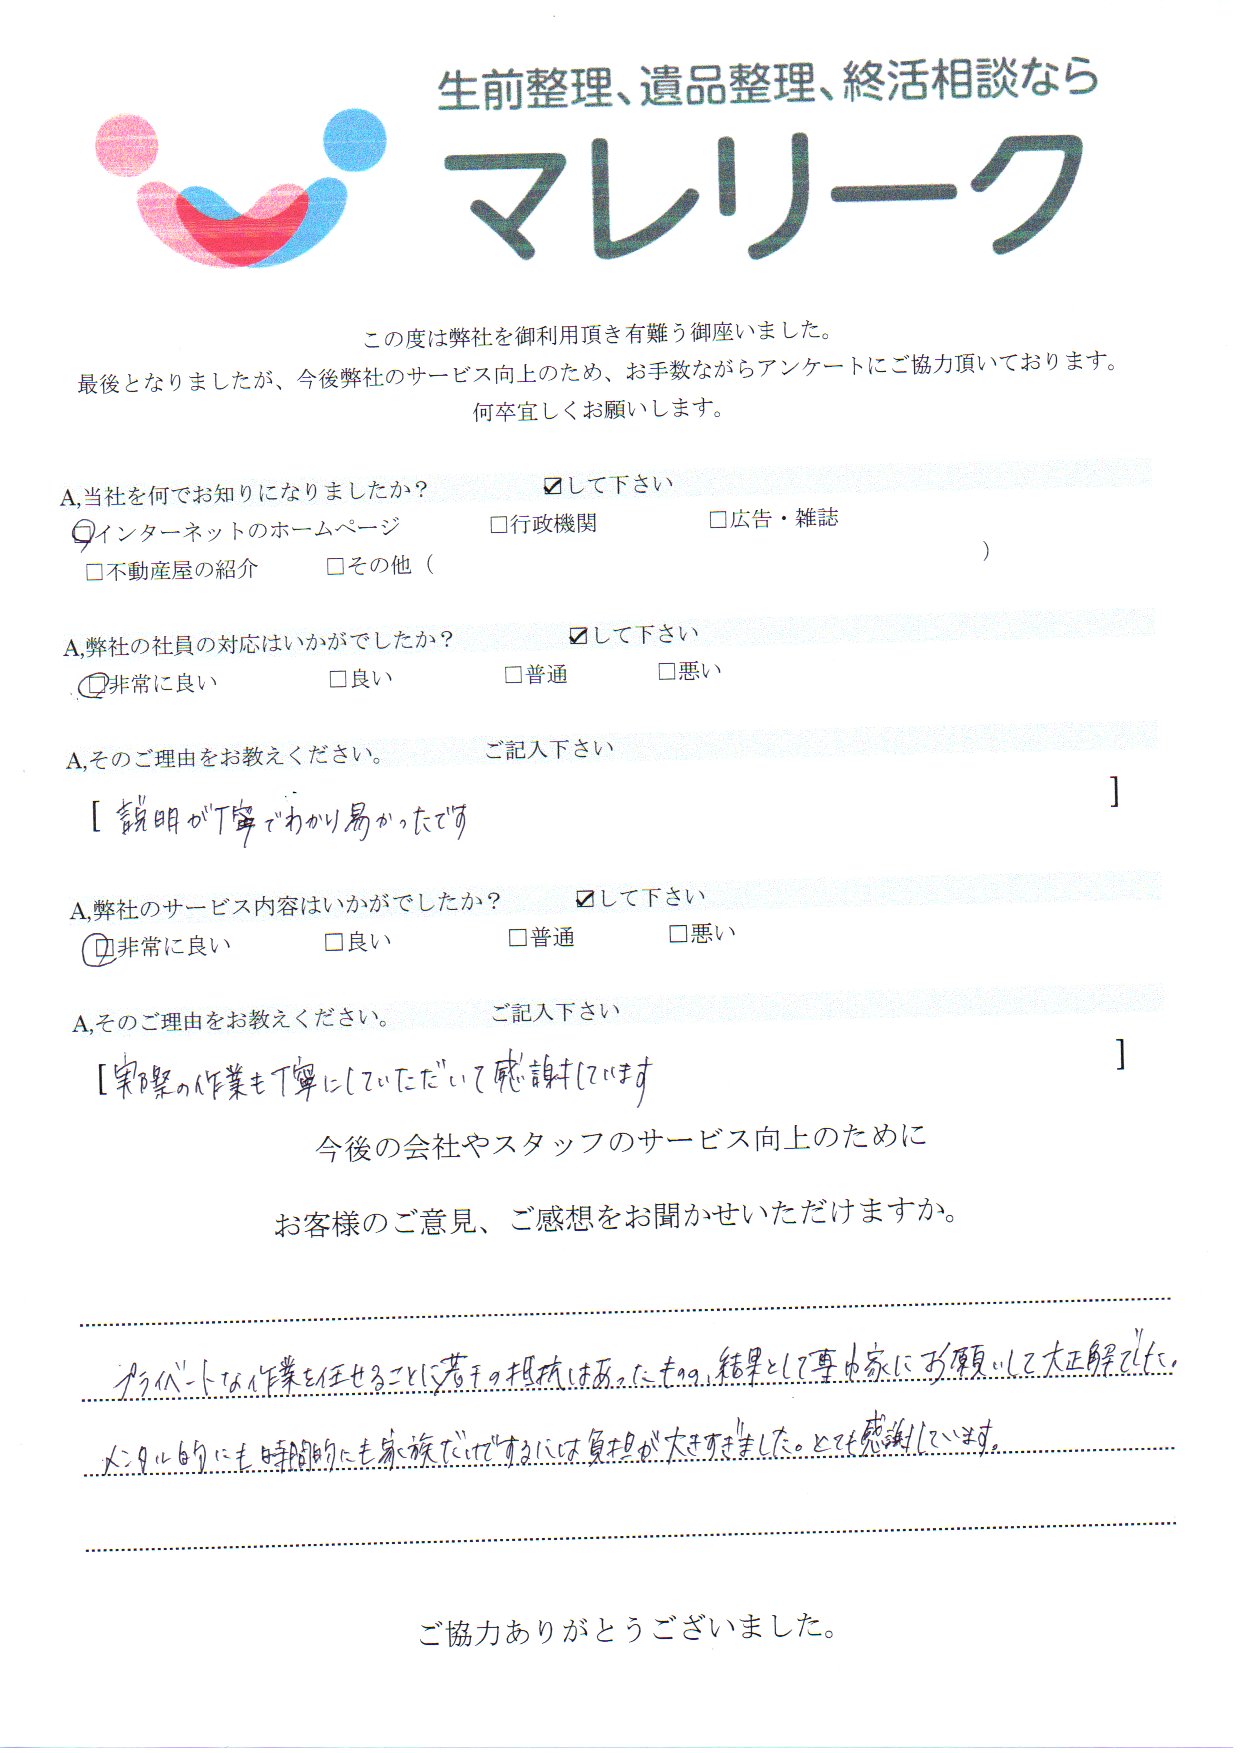 生前整理、遺品整理、終活相談なら
マレリーク
この度は弊社を御利用頂き有難う御座いました。
最後となりましたが、今後弊社のサービス向上のため、お手数ながらアンケートにご協力頂いております。
何卒宜しくお願いします。
A,当社を何でお知りになりましたか？ ☑して下さい
□インターネットのホームページ □行政機関 □広告・雑誌
□不動産屋の紹介 □その他（ ）
A,弊社の社員の対応はいかがでしたか？ ☑して下さい
□非常に良い □良い □普通 □悪い
A,そのご理由をお教えください。 ご記入下さい
[ 説明が丁寧でわかり易かったです ]
A,弊社のサービス内容はいかがでしたか？ ☑して下さい
□非常に良い □良い □普通 □悪い
A,そのご理由をお教えください。 ご記入下さい
[ 実際の作業も丁寧にしていただいて感謝しています ]
今後の会社やスタッフのサービス向上のために
お客様のご意見、ご感想をお聞かせいただけますか。
プライベートな作業を任せることに若干の抵抗はあったものの、結果として専門家にお願いして大正解でした。
メンタル的にも時間的にも家族だけでするには負担が大きすぎました。とても感謝しています。
ご協力ありがとうございました。